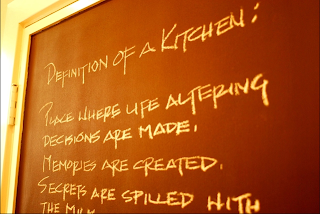 DEFINITION OF A KITCHEN:
PLACE WHERE LIFE ALTERING
DECISIONS ARE MADE.
MEMORIES ARE CREATED.
SECRETS ARE SPILLED WITH
THE MILK